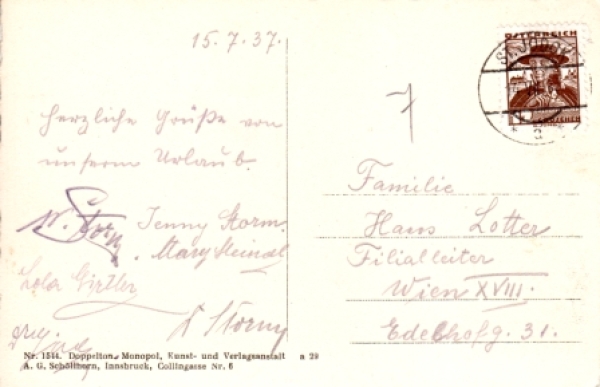 15. 7. 37.
Herzliche Grüße von
unserm Urlaub.
Storm
Jenny Storm.
Mary Meindl
Lola Girtler
Storm
Nr. 1544. Doppelton-Monopol, Kunst- und Verlagsanstalt a 29
A. G. Schöllhorn, Innsbruck, Collingasse Nr. 6
ÖSTERREICH
GROSCHEN
ST. JODOK
7
Familie
Hans Lotter
Filialleiter
Wien XVIII.
Edelhofg. 31.